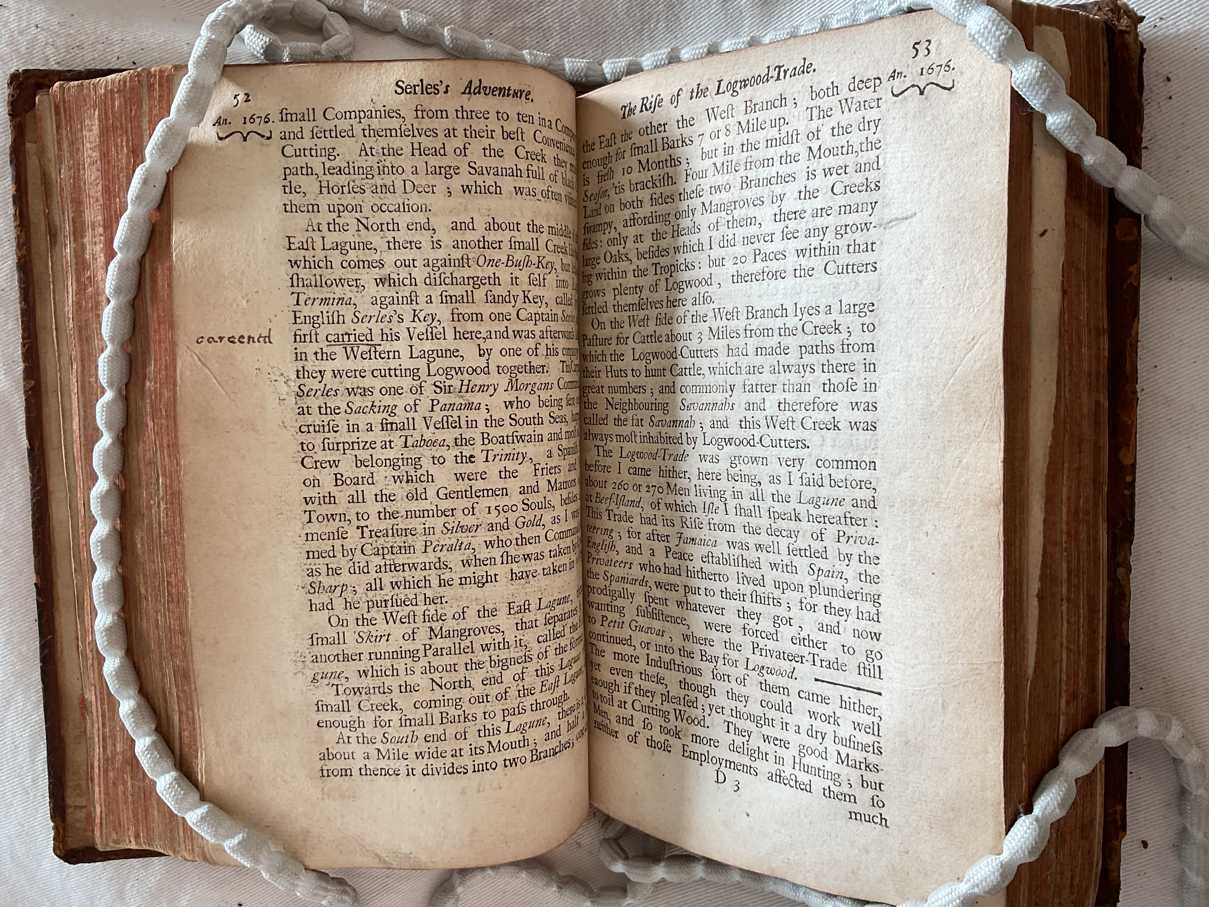 52
Serles's Adventure.
An. 1676.
ſmall Companies, from three to ten in a
and ſettled themſelves at their beſt
Cutting. At the Head of the Creek they
path, leading into a large Savanah full of
tle, Horſes and Deer ; which was often
them upon occaſion.
At the North end, and about the middle
Eaſt Lagune, there is another ſmall Creek
which comes out againſt One-Buſh-Key, but
ſhallower, which diſchargeth it ſelf into
Termina, againſt a ſmall ſandy Key, called
Engliſh Serles's Key, from one Captain
firſt carried his Veſſel here, and was
in the Weſtern Lagune, by one of his
they were cutting Logwood together.
Serles was one of Sir Henry Morgans
at the Sacking of Panama ; who being
cruiſe in a ſmall Veſſel in the South Seas,
to ſurprize at Taboca, the Boatſwain and
Crew belonging to the Trinity, a
on Board which were the Friers and
with all the old Gentlemen and Matrons
Town, to the number of 1500 Souls,
menſe Treaſure in Silver and Gold, as I
med by Captain Peralta, who then
as he did afterwards, when ſhe was taken
Sharp ; all which he might have taken
had he purſued her.
On the Weſt ſide of the Eaſt Lagune,
ſmall Skirt of Mangroves, that ſeparates
another running Parallel with it, called the
gune, which is about the bigneſs of the
Towards the North end of this
ſmall Creek, coming out of the Eaſt
enough for ſmall Barks to paſs through.
At the South end of this Lagune,
about a Mile wide at its Mouth ; and half
from thence it divides into two Branches;
53
The Riſe of the Logwood-Trade.
An. 1676.
the Eaſt the other the Weſt Branch ; both deep
enough for ſmall Barks 7 or 8 Mile up. The Water
is freſh 10 Months ; but in the midſt of the dry
Seaſon, 'tis brackiſh. Four Mile from the Mouth, the
Land on both ſides theſe two Branches is wet and
ſwampy, affording only Mangroves by the Creeks
ſides: only at the Heads of them, there are many
large Oaks, beſides which I did never ſee any grow-
ing within the Tropicks: but 20 Paces within that
grows plenty of Logwood, therefore the Cutters
ſettled themſelves here alſo.
On the Weſt ſide of the Weſt Branch lyes a large
Paſture for Cattle about 3 Miles from the Creek ; to
which the Logwood-Cutters had made paths from
their Huts to hunt Cattle, which are always there in
great numbers ; and commonly fatter than thoſe in
the Neighbouring Savannahs and therefore was
called the fat Savannah ; and this Weſt Creek was
always moſt inhabited by Logwood-Cutters.
The Logwood-Trade was grown very common
before I came hither, here being, as I ſaid before,
about 260 or 270 Men living in all the Lagune and
at Beef-Iſland, of which Iſle I ſhall ſpeak hereafter :
This Trade had its Riſe from the decay of Priva-
teering ; for after Jamaica was well ſettled by the
Engliſh, and a Peace eſtabliſhed with Spain, the
Privateers who had hitherto lived upon plundering
the Spaniards, were put to their ſhifts ; for they had
prodigally ſpent whatever they got, and now
wanting ſubſiſtence, were forced either to go
to Petit Guavas, where the Privateer-Trade ſtill
continued, or into the Bay for Logwood.
The more Induſtrious ſort of them came hither,
yet even theſe, though they could work well
enough if they pleaſed ; yet thought it a dry buſineſs
to toil at Cutting Wood. They were good Marks-
Men, and ſo took more delight in Hunting ; but
neither of thoſe Employments affected them ſo
D 3
much